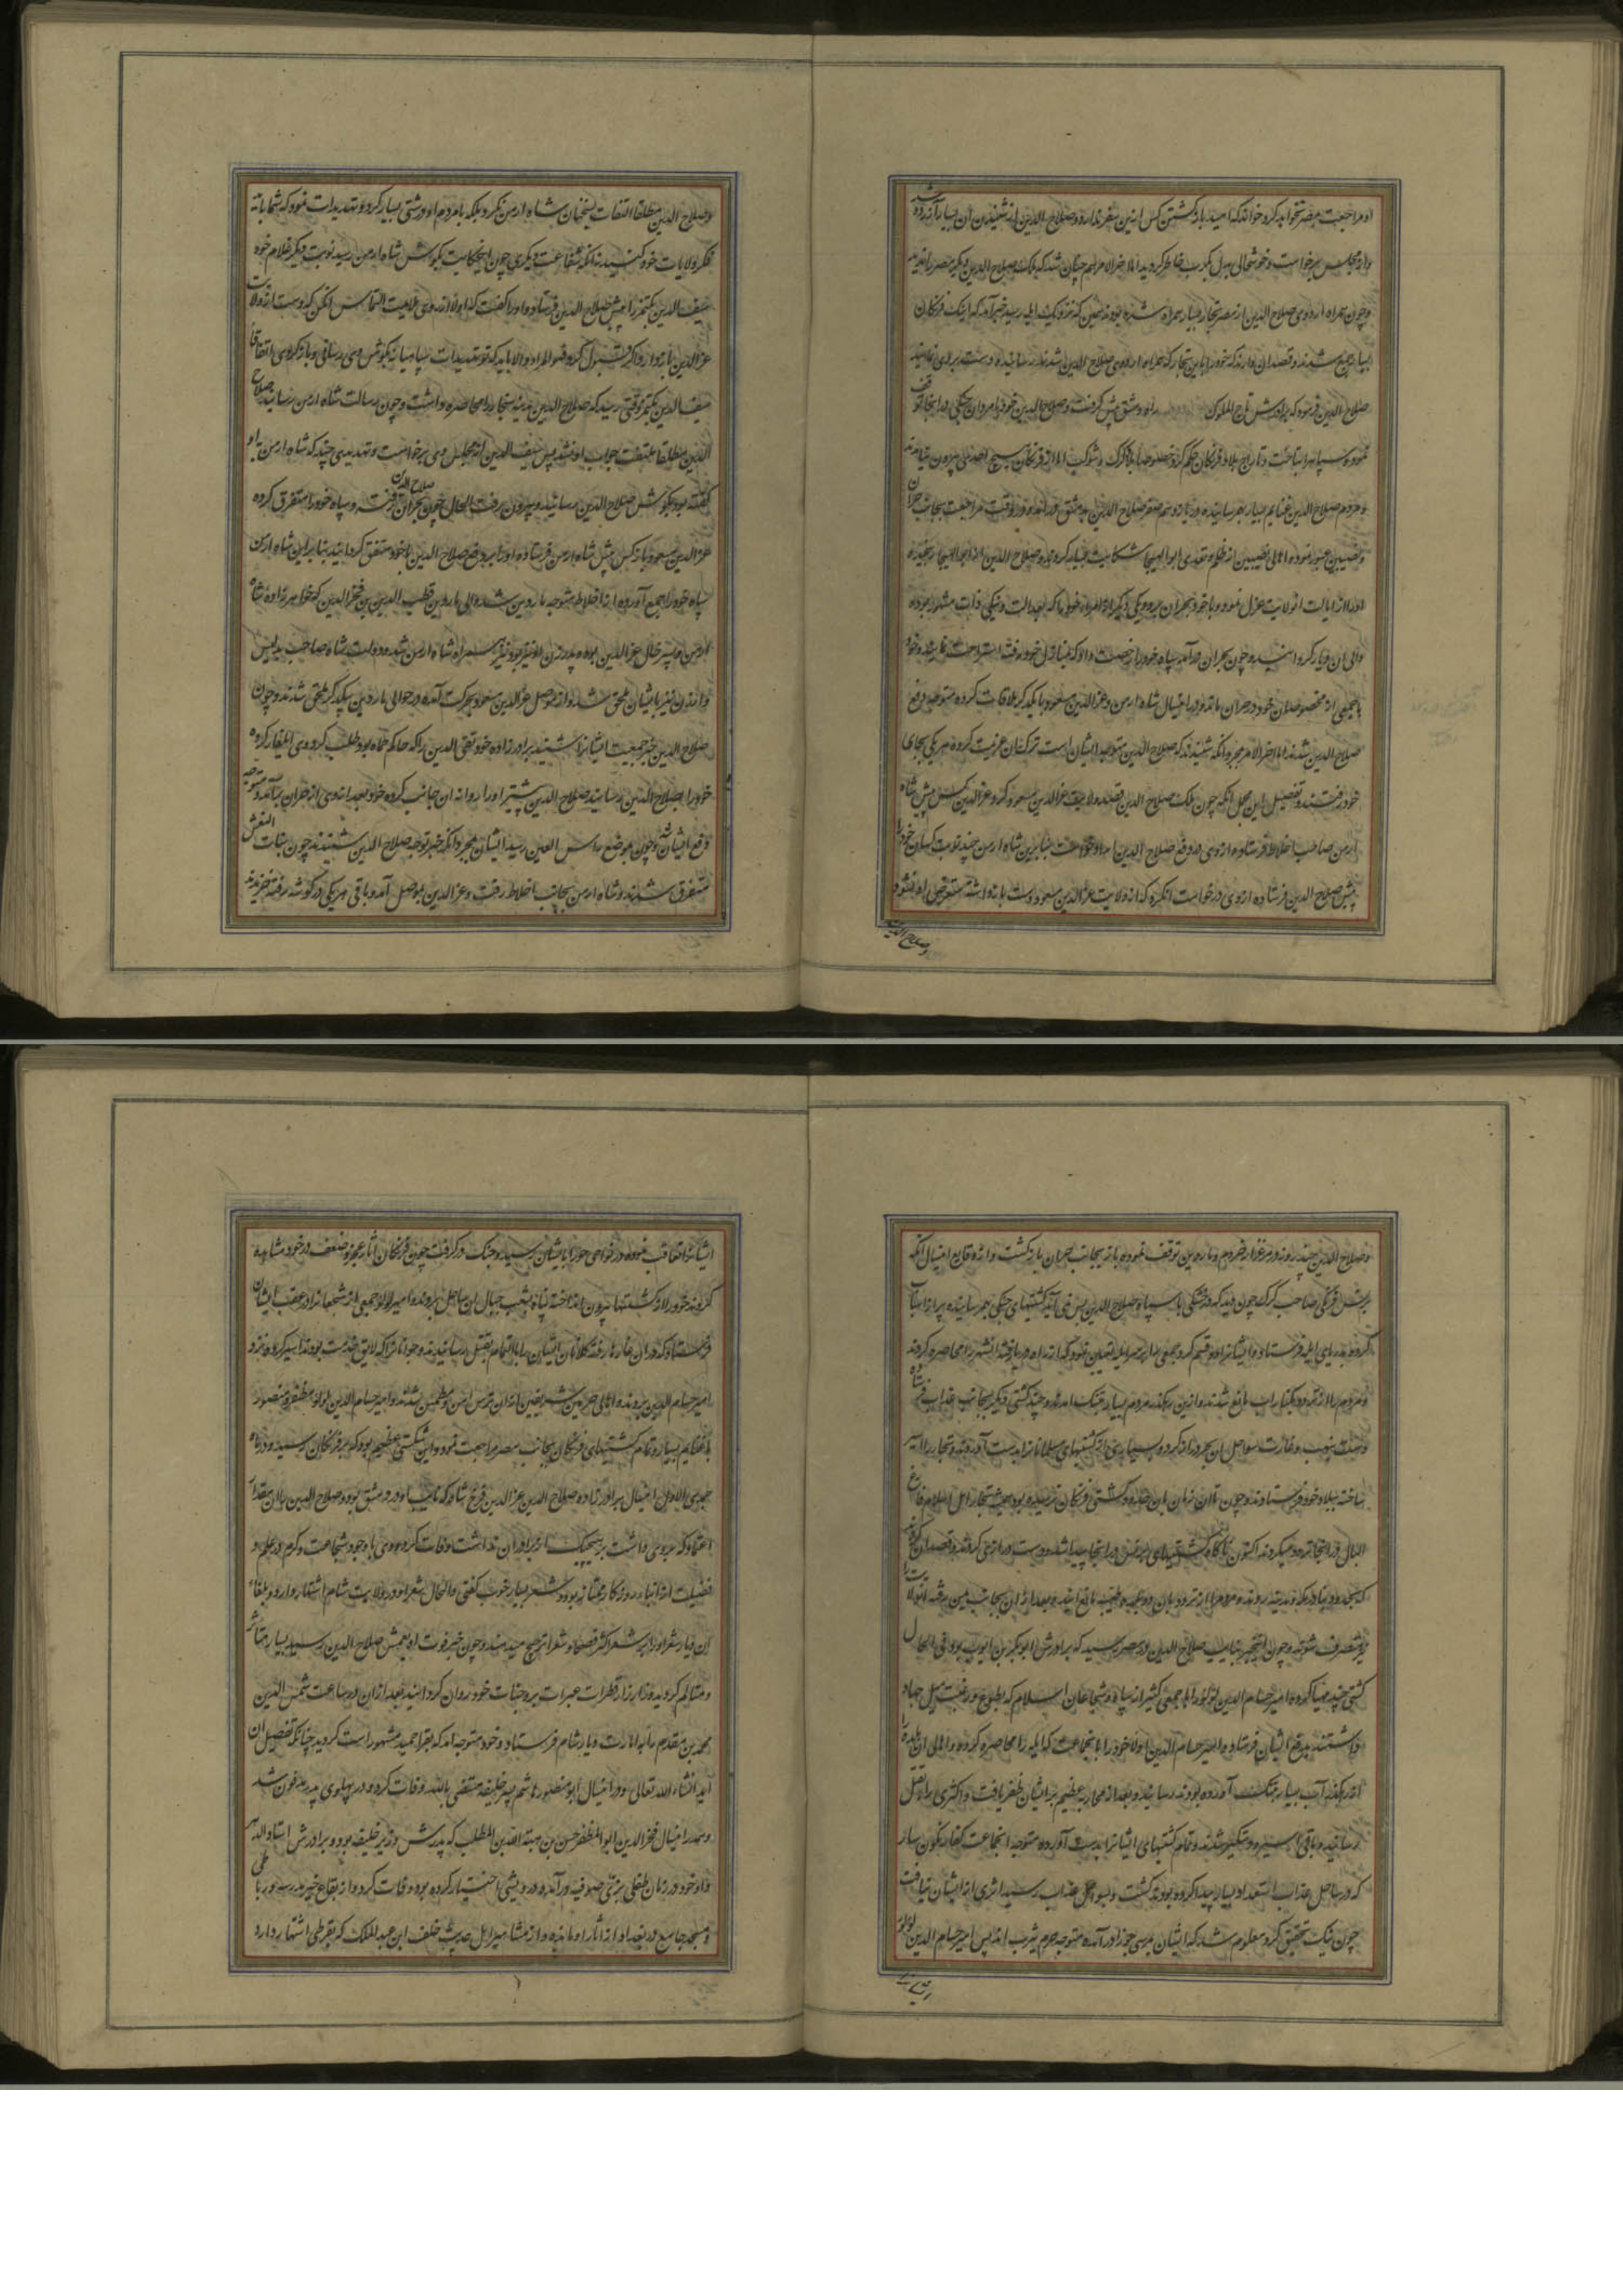 او مراجعت بمصر نخواهد کرد خواند که امید بازگشتن کس ازین سفر ندارد و صلاح الدین از شنیدن این بسیار آزرده شد
و از مجلس برخواست و خوشحالی بدل بکرب خاطر گردید اما آخر الامر هم چنان شد که ملک صلاح الدین دیگر مصر را ندید
و چون همراه اردوی صلاح الدین از مصر تجار بسیار همراه شده بودند همین که نزدیک ایله رسید خبر آمد که اینک فرنگان
بسیار جمع شدند و قصد آن دارند که خود را باین تجار که همراه اردوی صلاح الدین شدند رسانیده دست بردی نمایند
صلاح الدین فرمود که برادرش تاج الملوک راه دمشق پیش گرفت و صلاح الدین خود با مردان جنگی در آنجا توقف
نموده سپاه را بتاخت و تاراج بلاد فرنگان حکم کرد خصوصا بلاد کرک و شوبک اما از فرنگان هیچ احدی بیرون نیامدند
و مردم صلاح الدین غنایم بسیار بهم رسانیده در یازدهم صفر صلاح الدین بدمشق در آمد و در وقت مراجعت بجانب حران
و نصیبین عبور نموده اهالی نصیبین از ظلم و تعدی ابو الهیجا شکایت بسیار کردند و صلاح الدین از ابو الهیجا رنجیده
او را از ایالت آن ولایت عزل نموده و با خود بحران برد و یکی دیگر از امراء خود را که بعدالت و نیکی ذات مشهور بود
والی آن دیار گردانید و چون بحران در آمد سپاه خود را رخصت داد که بمنازل خود رفته استراحت نمایند و خود
با جمعی از مخصوصان خود در حران ماند و در این سال شاه ارمن و عز الدین مسعود با یکدیگر ملاقات کرده متوجه دفع
صلاح الدین شدند اما آخر الامر بمجرد آنکه شنیدند که صلاح الدین متوجه ایشان است ترک آن عزیمت کرده هر یکی بجای
خود رفتند و تفصیل این مجمل آنکه چون ملک صلاح الدین قصد ولایت عز الدین مسعود کرد عز الدین کس پیش شاه
ارمن صاحب اخلاط فرستاده از وی در دفع صلاح الدین امداد خواست بنابرین شاه ارمن چند نوبت کسان خود را
پیش صلاح الدین فرستاده از وی درخواست آن کرد که از ولایت عز الدین مسعود دست باز داشته متعرض او نشود
و صلاح الدین
و صلاح الدین مطلقا التفات بسخنان شاه ارمن نکرد بلکه با مردم او درشتی بسیار کرد و تهدیدات نمود که شما باید
فکر ولایات خود کنید نه آنکه شفاعت دیگری چون این حکایت بگوش شاه ارمن رسید نوبت دیگر غلام خود
سیف الدین بکتمر را پیش صلاح الدین فرستاد و او را گفت که اولا از روی ملایمت التماس آن کن که دست از ولایت
عز الدین باز دارد اگر قبول کرد فهو المراد و الا باید که تو تهدیدات سپاهیانه بگوش وی رسانی و باز گردی اتفاقا
سیف الدین بکتمر وقتی رسید که صلاح الدین مدینه سنجار را محاصره داشت و چون رسالت شاه ارمن رسانید صلاح
الدین مطلقا ملتفت جواب او نشد پس سیف الدین از مجلس وی برخواست و تهدیدی چند که شاه ارمن باو
گفته بود بگوش صلاح الدین رسانید و بیرون رفت الحال چون صلاح الدین بحران رفت و سپاه خود را متفرق کرده
عز الدین مسعود باز کس پیش شاه ارمن فرستاده او را بر دفع صلاح الدین با خود متفق گردانید بنا برین شاه ارمن
سپاه خود را جمع آورده از اخلاط متوجه ماردین شد و والی ماردین قطب الدین بن فخر الدین که خواهر زاده شاه
ارمن و پسر خال عز الدین بود و پدر زن او نیز بود نیز همراه شاه ارمن شد و دولت شاه صاحب بدلیس
و ارزن نیز بایشان ملحق شد و از موصل عز الدین مسعود بحرکت آمده در حوالی ماردین بیکدیگر ملحق شدند و چون
صلاح الدین خبر جمعیت ایشان را شنید برادر زاده خود تقی الدین را که حاکم حماه بود طلب کرد و وی ایلغار کرده
خود را بصلاح الدین رسانید صلاح الدین پیشتر او را روانه آن جانب کرده خود بعد از وی از حران برآمد و متوجه
دفع ایشان شد و چون بموضع راس العین رسید ایشان بمجرد آنکه خبر توجه صلاح الدین شنیدند چون بنات النعش
متفرق شدند و شاه ارمن بجانب اخلاط رفت و عز الدین بموصل آمد و باقی هر یکی در گوشه رفته خزیدند
و صلاح الدین چند روز در مرغزار خرزم و ماردین توقف نموده باز بجانب حران بازگشت و از وقایع این سال آنکه
برنس فرنگی صاحب کرک چون دید که در خشکی با سپاه صلاح الدین بس نمی آید کشتیهای جنگی بهم رسانیده پر از اسباب
کرده بدریای ایله فرستاد و ایشان را دو قسم کرد جمعی را بر سر ایله تعیین نمود که از راه دریا رفته آن شهر را محاصره کردند
و مردم را از تردد بکنار آب مانع شدند و ازین رهگذر مردم بسیار بتنگ آمدند و چند کشتی دیگر بجانب عذاب فرستاده
دست بنهب و غارت سواحل آن بحر دراز کرد و بسیاری از کشتیهای مسلمانان را بدست آوردند و تجار را اسیر
ساخته ببلاد خود فرستادند و چون تا آن زمان بآن حدود کشتی فرنگان نرسیده بود همیشه تجار اهل اسلام فارغ
البال در آنجا تردد میکردند اکنون ناگاه کشتیهای برنس در آنجا پیدا شد و دست درازی کردند و قصد آن کردند
که بحدود مدینه روند و مردم را از تردد بآن دو حرم طیبه مانع آیند و بعد از آن بجانب یمن رفته آن ولایت را
نیز متصرف شوند و چون این خبر بنایب صلاح الدین در مصر رسید که برادرش ابو بکر بن ایوب بود فی الحال
کشتی چند مهیا کرده و امیر حسام الدین لولو را با جمعی کثیر از سپاه و شجاعان اسلام که بطوع و رغبت میل جهاد
داشتند بدفع ایشان فرستاد و امیر حسام الدین اولا خود را بآن جماعت که ایله را محاصره کرده و اهالی آن بلده را
از رهگذر آب بسیار بتنگ آورده بودند رسانید و بعد از محاربه عظیم بر ایشان ظفر یافت و اکثری را بقتل
رسانید و باقی اسیر و دستگیر شدند و تمام کشتیهای ایشان را بدست آورده متوجه آن جماعت کفار نگون سار
که در ساحل عذاب استعداد بسیار پیدا کرده بودند گشت و بسواحل عذاب رسید اثری از ایشان نیافت
چون نیک تحقیق کرد معلوم شد که ایشان بمرسی حوزا در آمده متوجه حرم یثرب اند پس امیر حسام الدین لولو
ایشان را
ایشان را تعاقب نموده در نواحی حورا بایشان رسید و جنگ در گرفت چون فرنگان آثار عجز و ضعف در خود مشاهده
کردند خود را از کشتیها بیرون انداخته پناه بشعب جبال آن ساحل بردند و امیر لولو جمعی از شجعان را در عقب ایشان
فرستاد که در آن غارها رفته کلانان ایشان را بالتمام بقتل رسانیدند و جوانان را که لایق خدمت بودند اسیر کرده نزد
امیر حسام الدین بردند و اهالی حرمین شریفین از آن ترس ایمن و مطمئن شدند و امیر حسام الدین لولو مظفر و منصور
با غنایم بسیار و تمام کشتیهای فرنگان بجانب مصر مراجعت نمود و این شکستی عظیم بود که بر فرنگان رسید و در ماه
جمادی الاول این سال برادر زاده صلاح الدین عز الدین فرخ شاه که نایب او در دمشق بود و صلاح الدین را آن مقدار
اعتماد که بر وی داشت بر هیچ یک از برادران نداشت وفات کرد و وی با وجود شجاعت و کرم در علم و
فضیلت از ابناء روزگار ممتاز بود و شعر بسیار خوب گفتی و الحال شعر او در ولایت شام اشتهار دارد و بلغاء
آن دیار شعر او را بر شعر اکثر فصحاء شعرا ترجیح میدهند و چون خبر فوت او بعمش صلاح الدین رسید بسیار متاثر
و متالم گردیده زار زار قطرات عبرات بر وجنات خود روان گردانید بعد از آن در ساعت شمس الدین
محمد بن مقدم را بامارت دیار شام فرستاد و خود متوجه آمد که بقرا حمید مشهور است گردید چنانکه تفصیل آن
آید انشاء الله تعالی و در این سال ابو منصور هاشم پسر خلیفه مستضی بالله وفات کرد و در پهلوی پدر مدفون شد
و هم در این سال فخر الدین ابو المظفر حسن بن هبة الله بن المطلب که پدرش وزیر خلیفه بود و برادرش استاد الدار
و او خود در زمان طفلی بزی صوفیه در آمده و درویشی اختیار کرده بود وفات کرد و از بقاع خیر مدرسه و رباطی
و مسجد جامع در بغداد از آثار او مانده و از مشاهیر اهل حدیث خلف ابن عبد الملک که بقرطبی اشتهار دارد